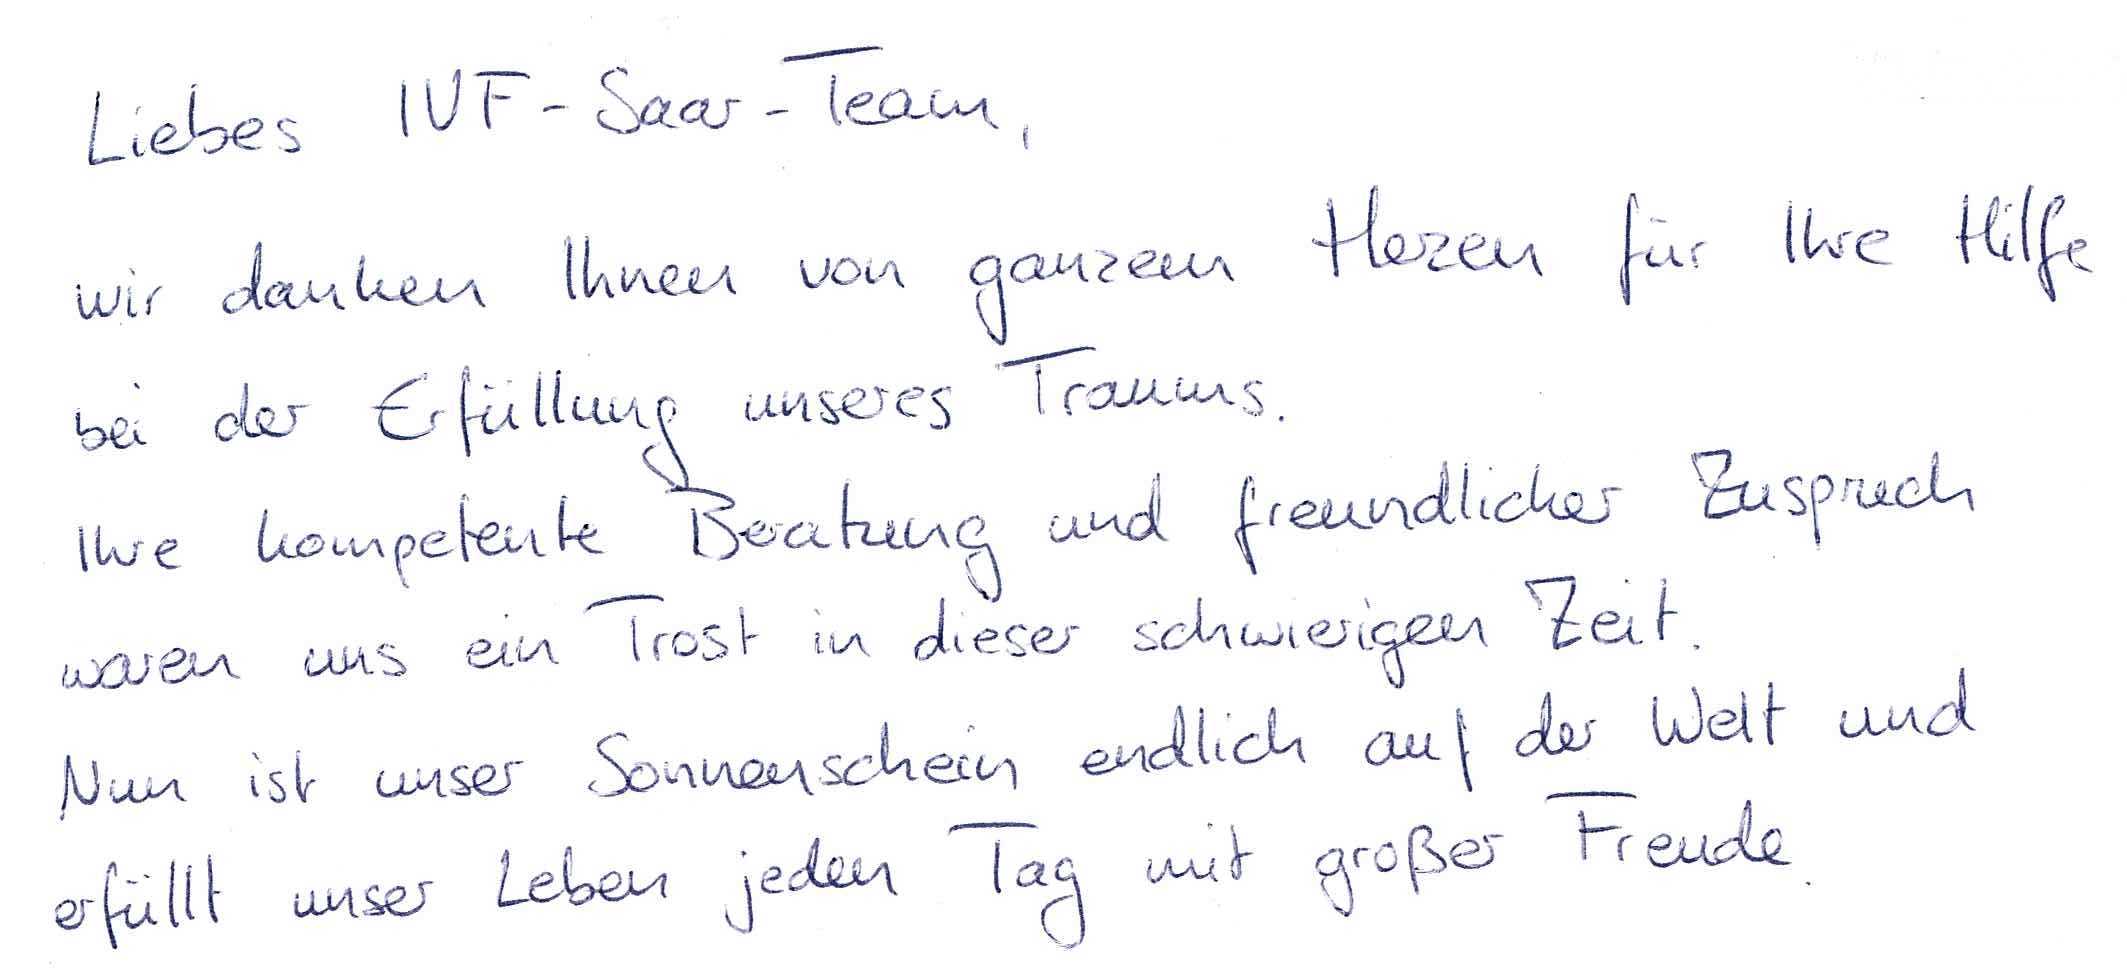 Liebes IVF-Saar-Team,
wir danken Ihnen von ganzem Herzen für Ihre Hilfe
bei der Erfüllung unseres Traums.
Ihre kompetente Beratung und freundlicher Zuspruch
waren uns ein Trost in dieser schwierigen Zeit.
Nun ist unser Sonnenschein endlich auf der Welt und
erfüllt unser Leben jeden Tag mit großer Freude.